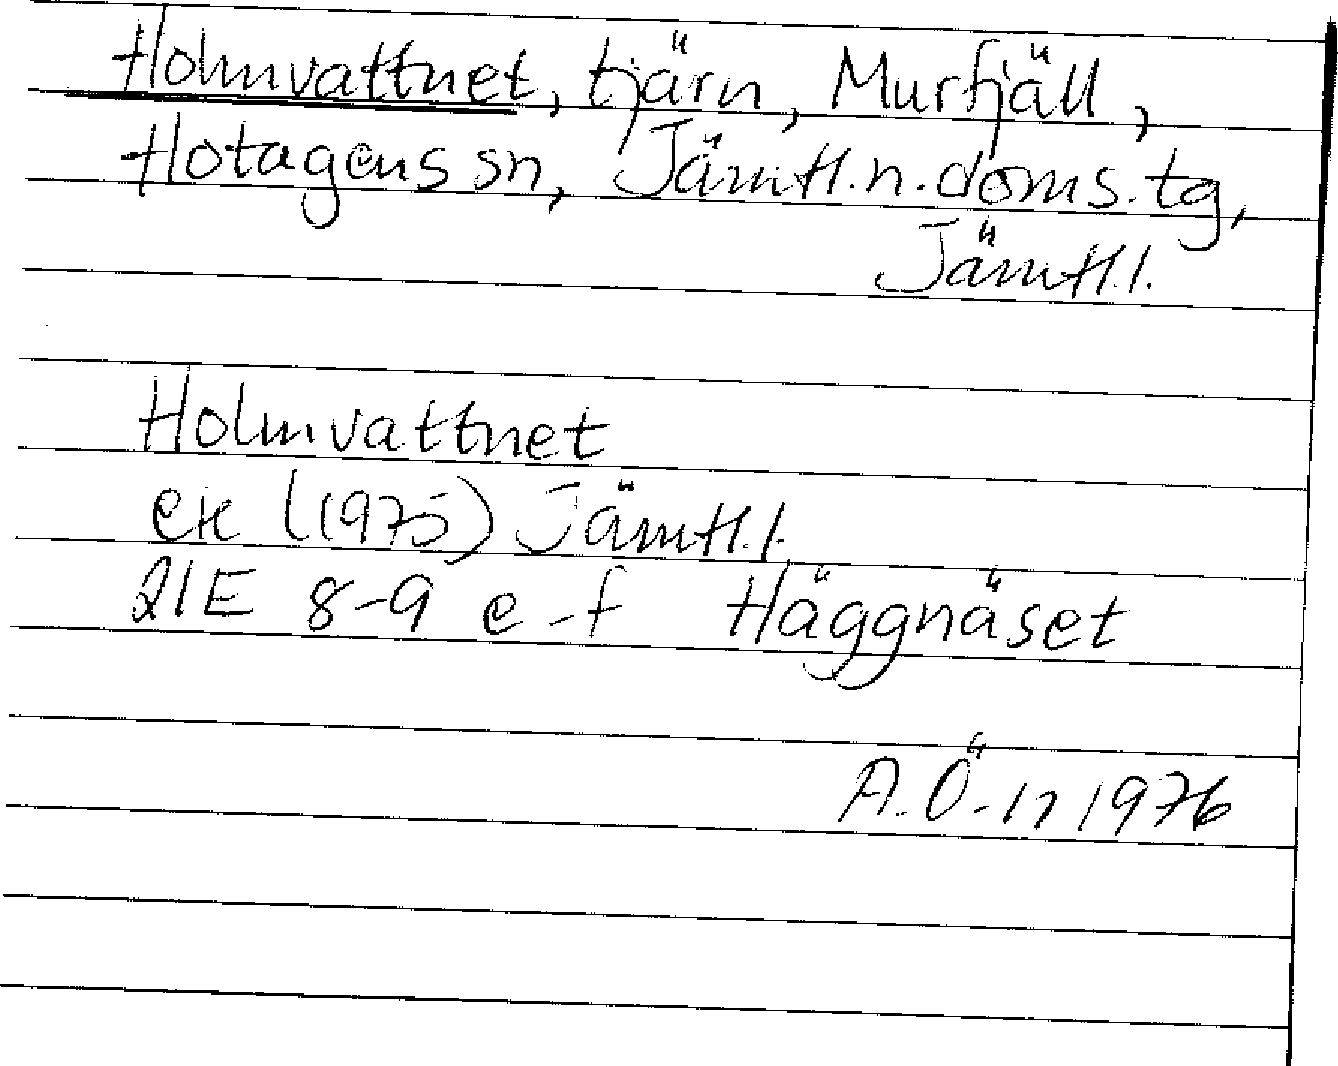 Holmvattnet, tjärn, Murfjäll,
Hotagens sn, Jämtl.n.doms.tg,
Jämtl.l.
Holmvattnet
ek (1975) Jämtl.l.
21E 8-9 e-f Häggnäset
A.Ö-n 1976